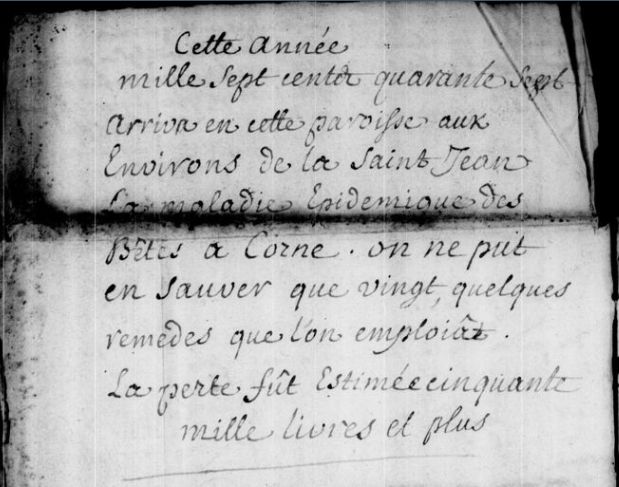 Cette année
mille sept cents quarante sept
Arriva en cette paroisse aux
Environs de la Saint Jean
La maladie Epidemique des
Bêtes a Corne. on ne put
en sauver que vingt, quelques
remedes que l'on emploiât.
La perte fût Estimée cinquante
mille livres et plus